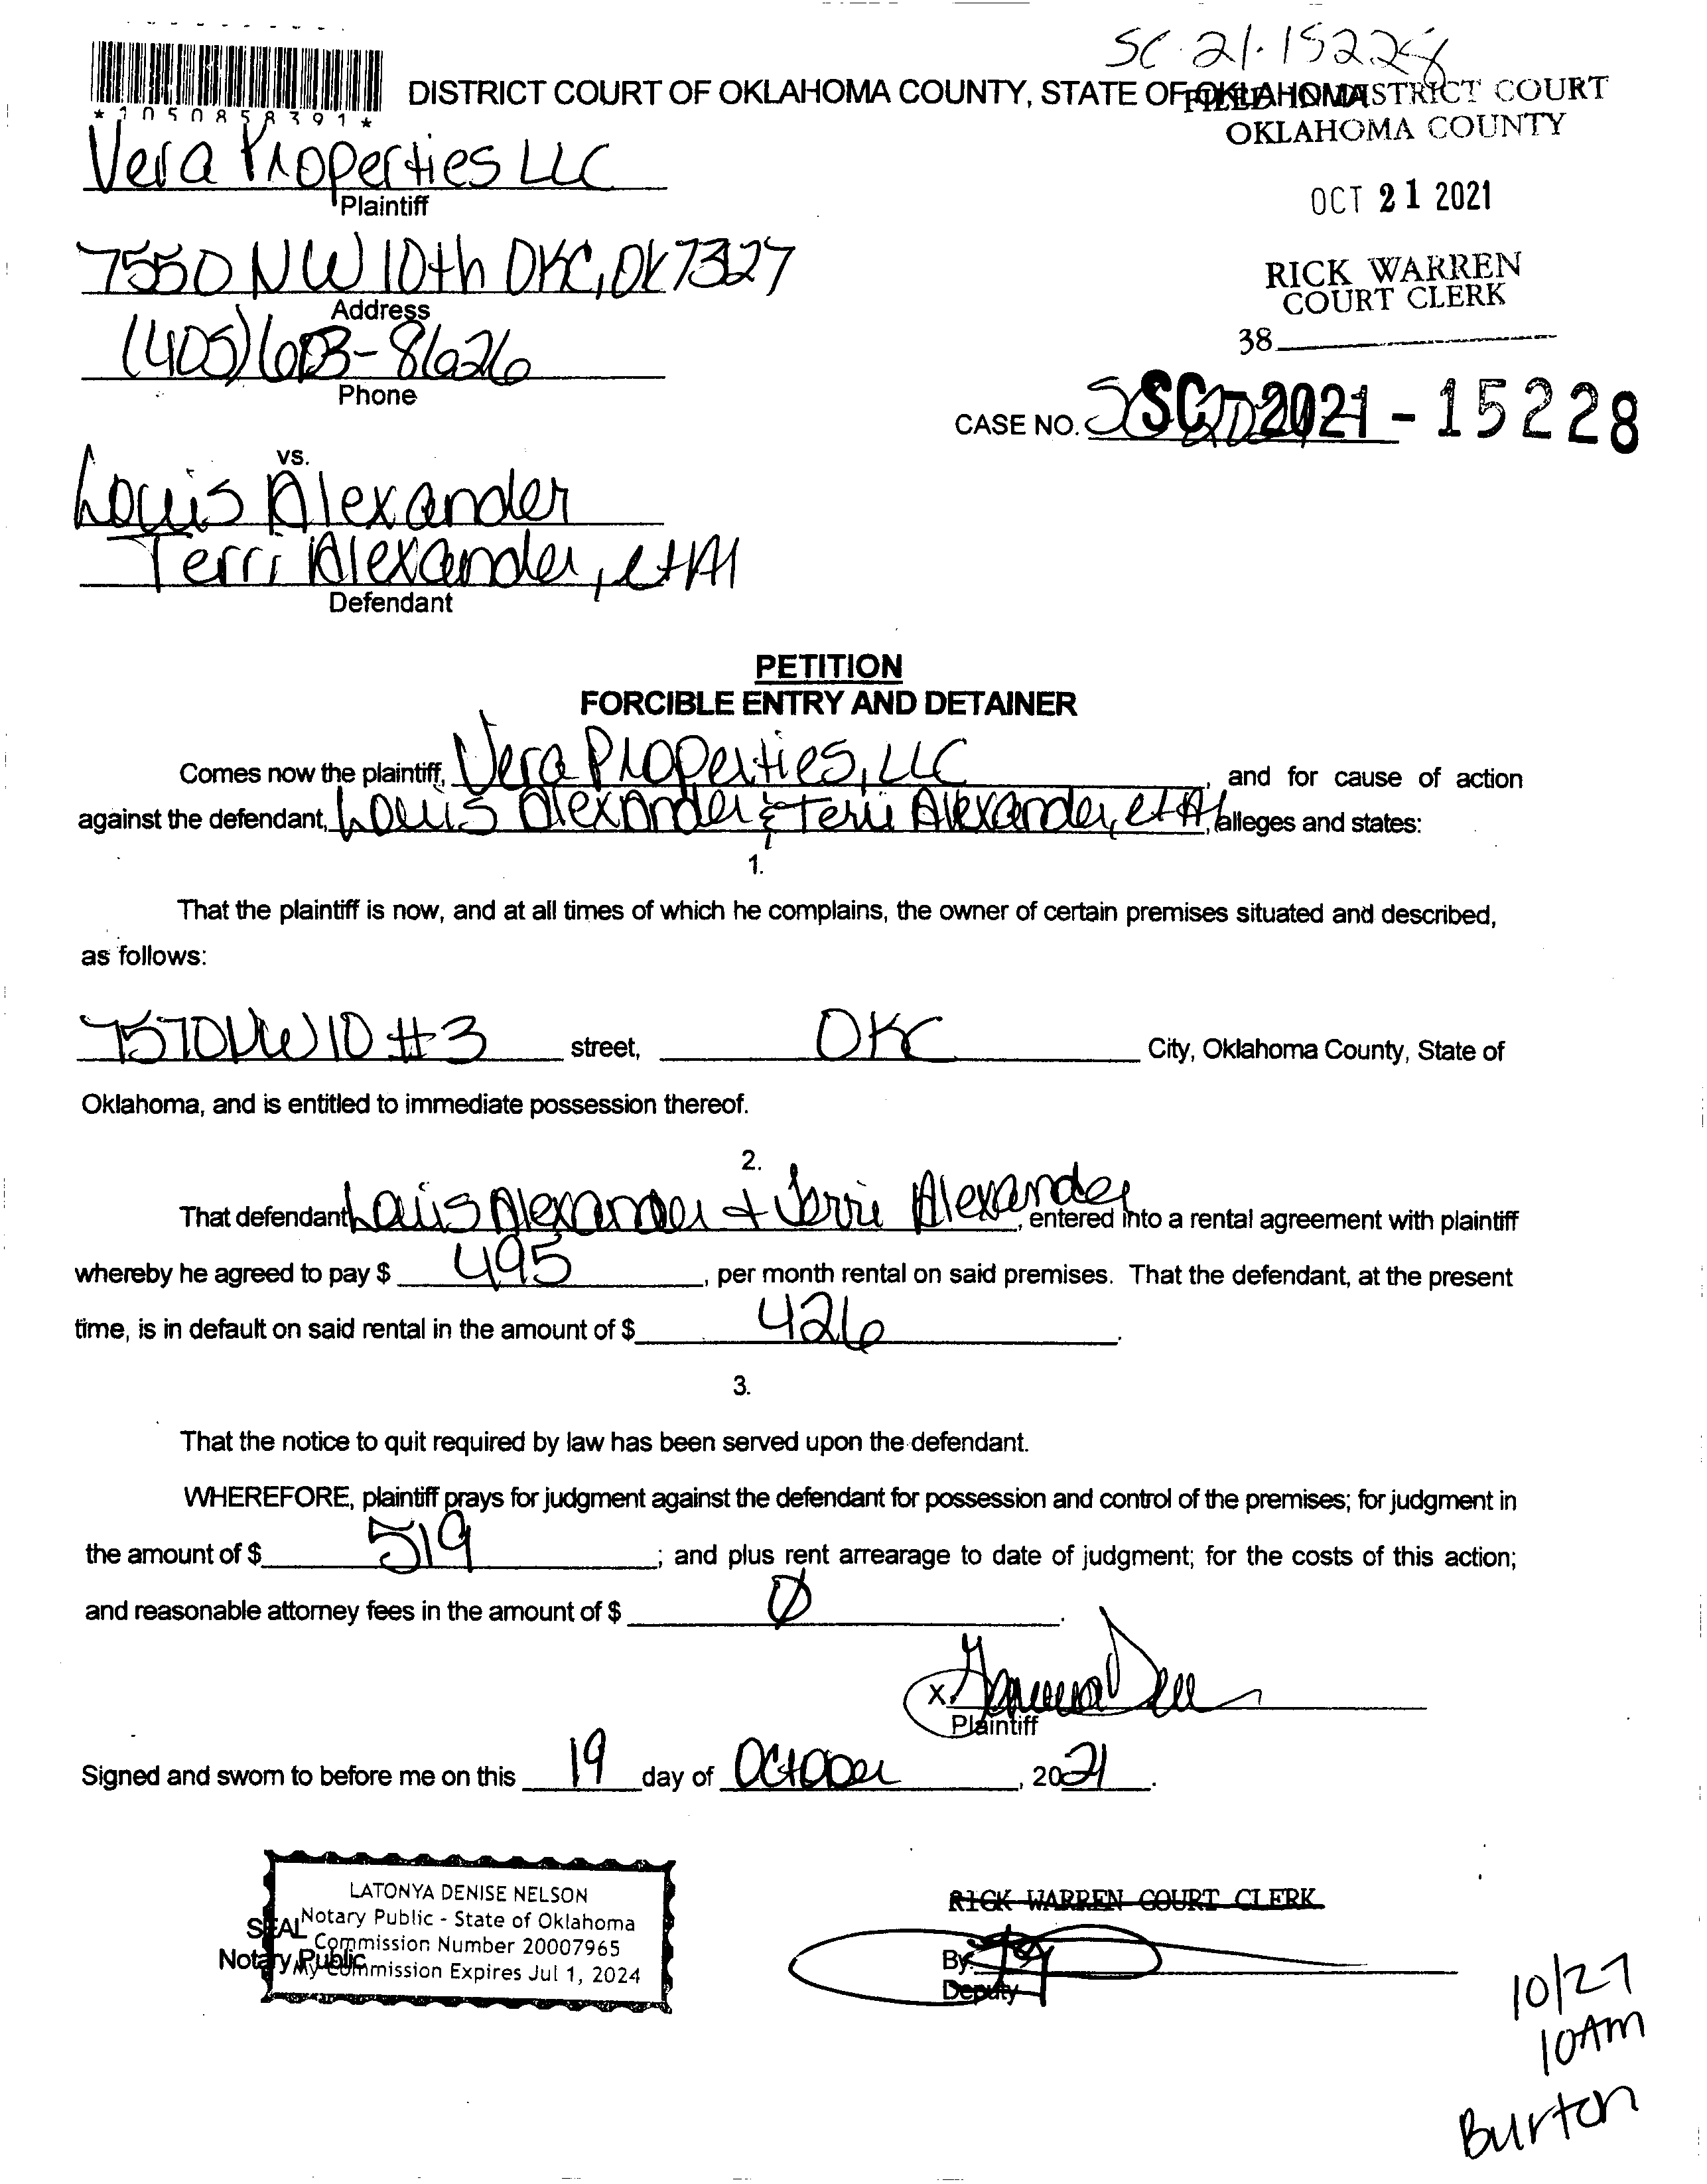 SC-21-15228
*1050858391*
DISTRICT COURT OF OKLAHOMA COUNTY, STATE OF OKLAHOMA
FILED IN DISTRICT COURT
OKLAHOMA COUNTY
Vera Properties LLC
Plaintiff
OCT 21 2021
7550 NW 10th OKC, OK 7327
Address
RICK WARREN
COURT CLERK
(405) 603-8626
Phone
38
CASE NO. SC-2021-15228
vs.
Louis Alexander
Terri Alexander, et Al
Defendant
PETITION
FORCIBLE ENTRY AND DETAINER
Comes now the plaintiff, Vera Properties, LLC, and for cause of action
against the defendant, Louis Alexander & Terri Alexander, et Al, alleges and states:
1.
That the plaintiff is now, and at all times of which he complains, the owner of certain premises situated and described,
as follows:
7570 NW 10 #3 street, OKC City, Oklahoma County, State of
Oklahoma, and is entitled to immediate possession thereof.
2.
That defendant Louis Alexander + Terri Alexander, entered into a rental agreement with plaintiff
whereby he agreed to pay $ 495, per month rental on said premises. That the defendant, at the present
time, is in default on said rental in the amount of $ 426.
3.
That the notice to quit required by law has been served upon the defendant.
WHEREFORE, plaintiff prays for judgment against the defendant for possession and control of the premises; for judgment in
the amount of $ 519; and plus rent arrearage to date of judgment; for the costs of this action;
and reasonable attorney fees in the amount of $ Ø.
X
Plaintiff
Signed and sworn to before me on this 19 day of October, 2021.
LATONYA DENISE NELSON
Notary Public - State of Oklahoma
Commission Number 20007965
My Commission Expires Jul 1, 2024
SEAL
Notary Public
RICK WARREN COURT CLERK
By:
Deputy
10/27
10AM
Burton